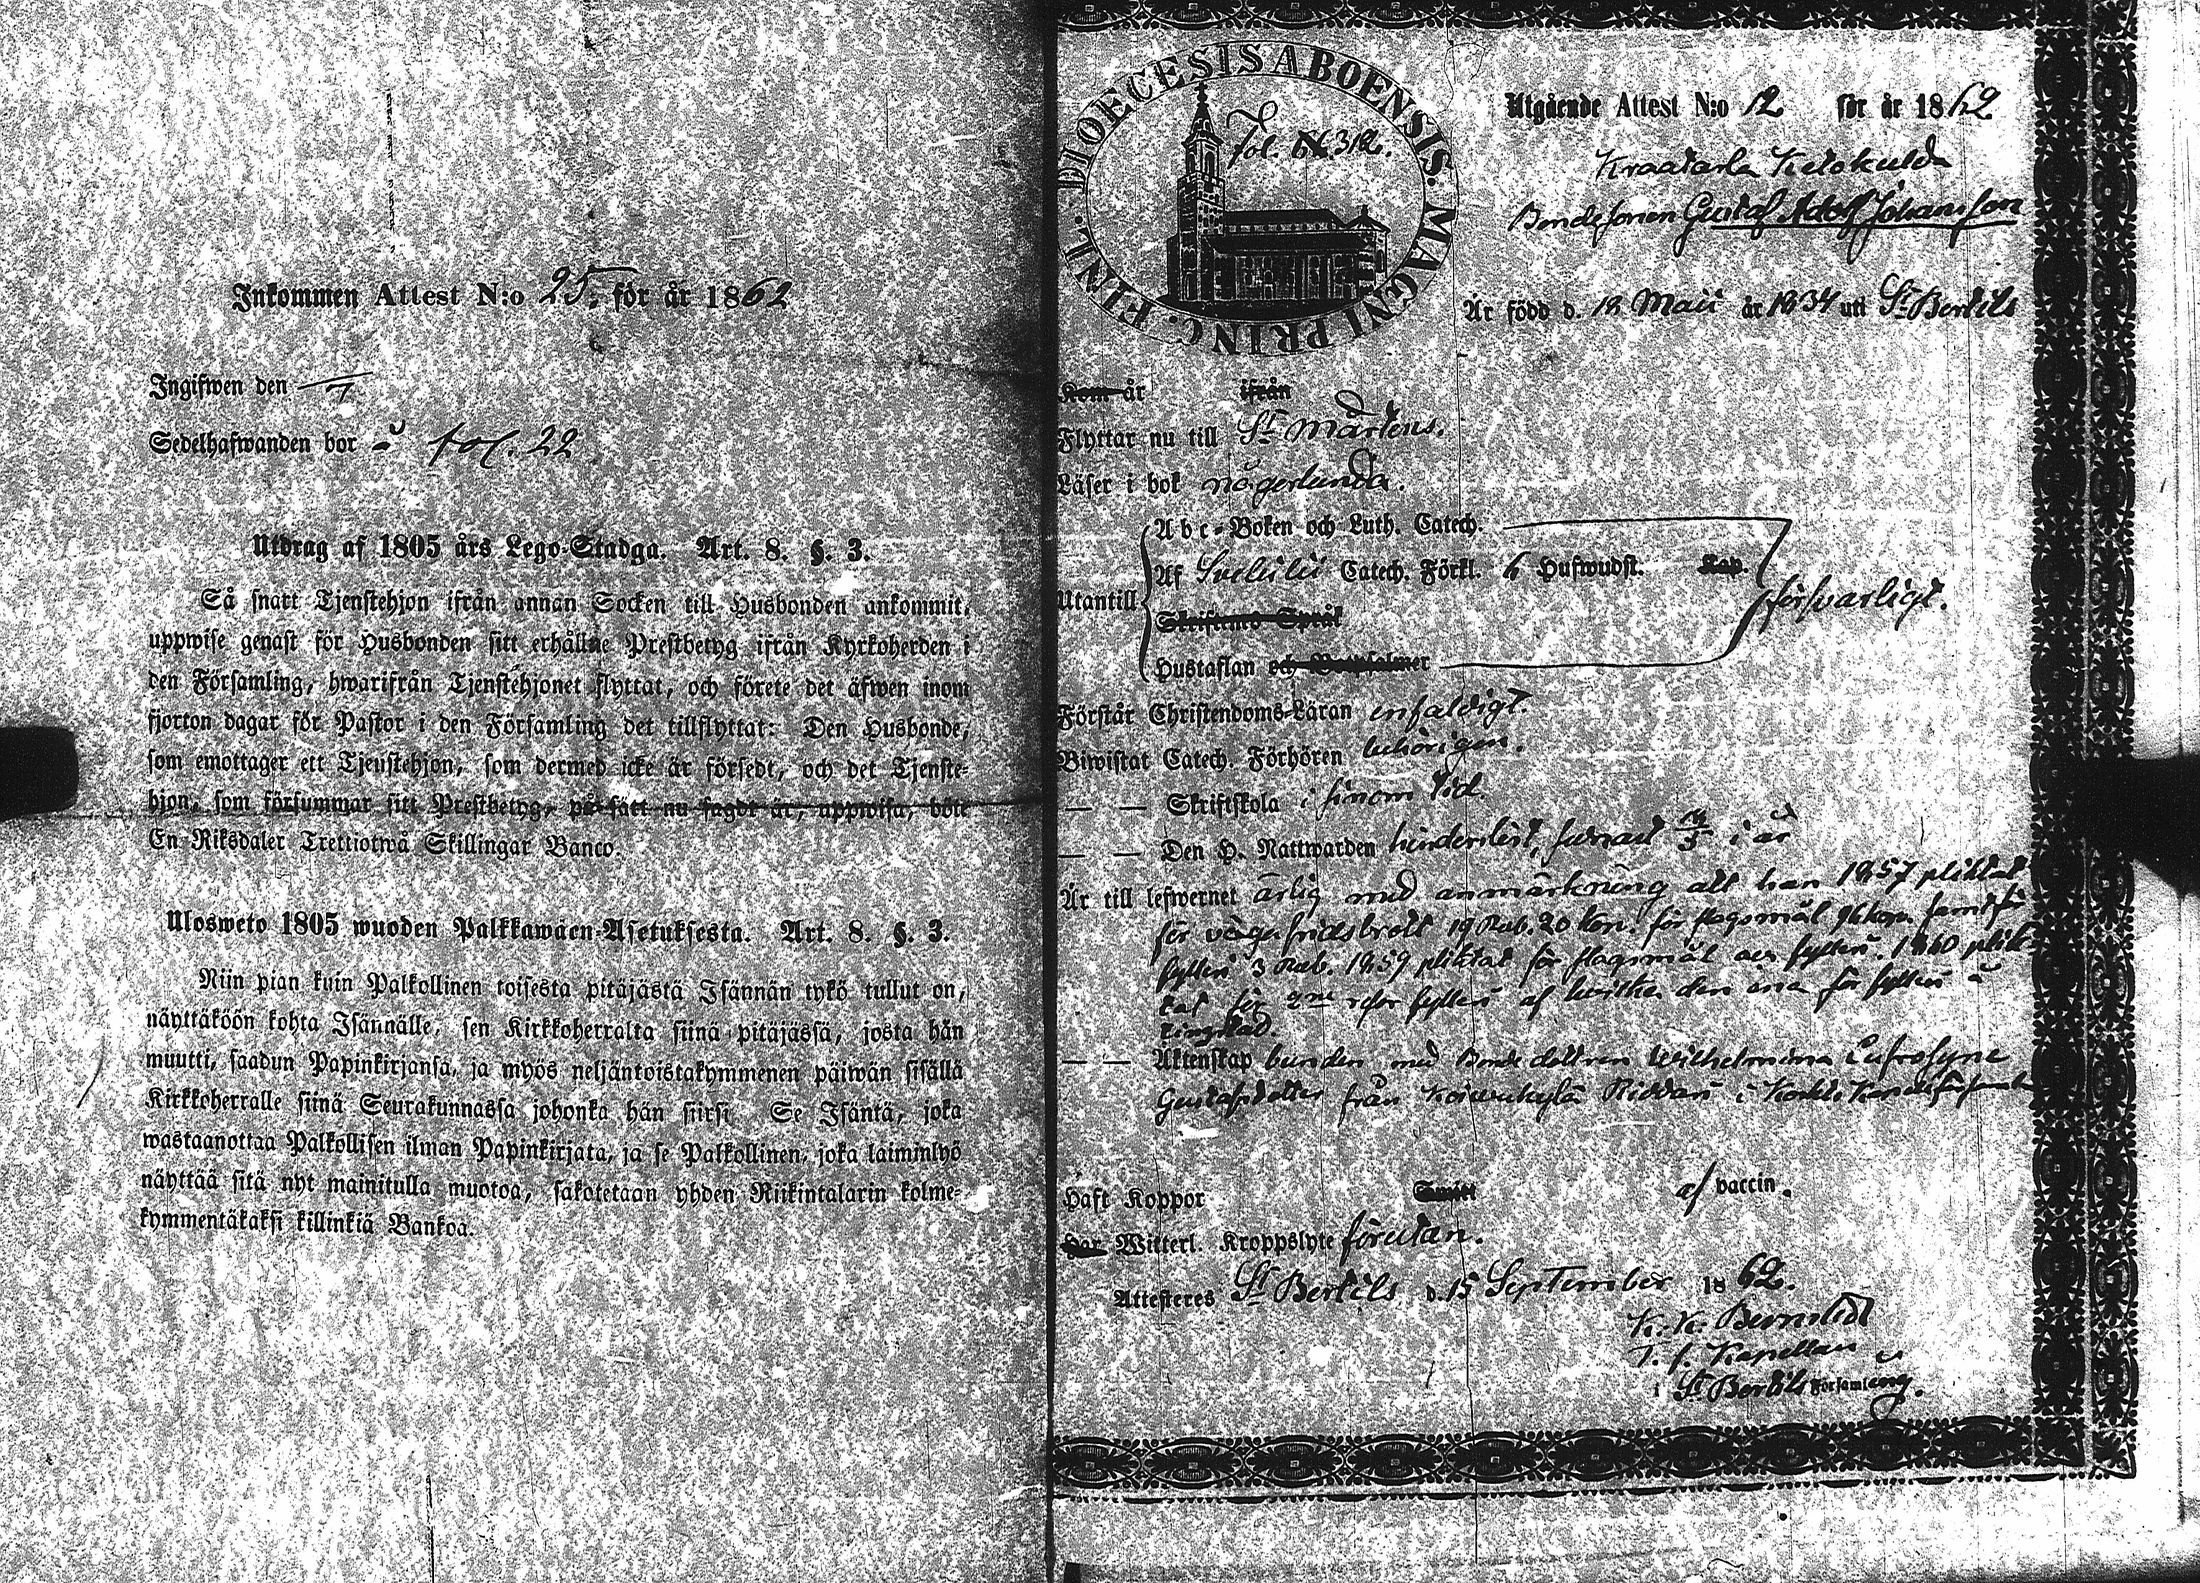 Inkommen Attest N:o 25. för år 1862
Ingifwen den
Sedelhafwanden bor å fol. 22
Utdrag af 1805 års Lego-Stadga. Art. 8. §. 3.
Så snart Tjenstehjon ifrån annan Socken till Husbonden ankommit,
uppwise genast för Husbonden sitt erhållne Prestbetyg ifrån Kyrkoherden i
den Församling, hwarifrån Tjenstehjonet flyttat, och förete det äfwen inom
fjorton dagar för Pastor i den Församling det tillflyttat: Den Husbonde,
som emottager ett Tjenstehjon, som dermed icke är försedt, och det Tjenste-
hjon, som försummar sitt Prestbetyg, på sätt nu sagdt är, uppwisa, böte
En Riksdaler Trettiotwå Skillingar Banco.
Ulosweto 1805 wuoden Palkkawäen-Asetuksesta. Art. 8. §. 3.
Niin pian kuin Palkollinen toisesta pitäjästä Isännän tykö tullut on,
näyttäköön kohta Isännälle, sen Kirkkoherralta siinä pitäjässä, josta hän
muutti, saadun Papinkirjansa, ja myös neljäntoistakymmenen päiwän sisällä
Kirkkoherralle siinä Seurakunnassa johonka hän siirsi. Se Isäntä, joka
wastaanottaa Palkollisen ilman Papinkirjata, ja se Palkollinen, joka laiminlyö
näyttää sitä nyt mainitulla muotoa, sakotetaan yhden Riikintalarin kolme-
kymmentäkaksi killinkiä Bankoa.
DIOECESIS ABOENSIS. MAGNI PRINC. FINL.
Fol. 312.
Utgående Attest N:o 12 för år 1862
Bondesonen Gustaf Adolf Johansson
Är född d. 18 Maii år 1834 uti St Bertils
Kom år ifrån
Flyttar nu till St Mårtens.
Läser i bok någorlunda.
Utantill
Abc-Boken och Luth. Catech.
Af Svebilii Catech. Förkl. 6 Hufwudst. Kap.
försvarligt.
Skriftens Språk
Hustaflan och Botpsalmer
Förstår Christendoms-Läran enfaldigt.
Biwistat Catech. Förhören behörigen.
— — Skriftskola i sinom tid.
— — Den H. Nattwarden hinderlöst, senast i år
Är till lefwernet ärlig med anmärkning att han 1857 pliktat
för vägafridsbrott 19 Rub. 20 kop. för slagsmål 96 kop. samt för
fylleri 3 Rub. 1859 pliktat för slagsmål och fylleri. 1860 plik-
tat för 2ne resor fylleri af hvilka den ena för fylleri å
tingstad.
— — Äktenskap bunden med Bonde dottren Wilhelmina Eufrosyne
Gustafsdotter från Koivukylä Riddari i
Haft Koppor Smitt af vaccin.
Har Witterl. Kroppslyte förutan.
Attesteres St Bertils d. 15 September 1862.
T. f. Kapellan
i St Bertils Församling.